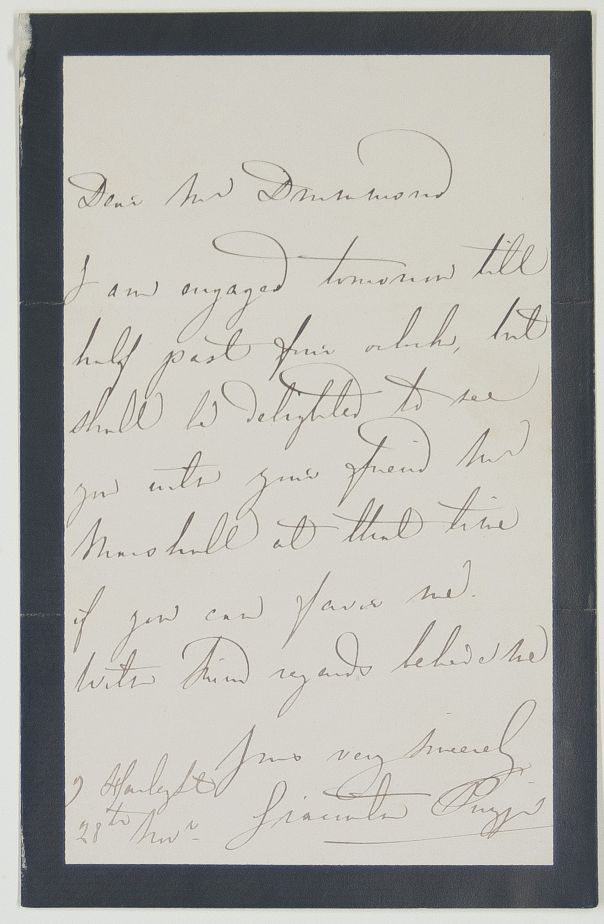 Dear Mr Drummond
I am engaged tomorrow till
half past four oclock, but
shall be delighted to see
you with your friend Mr
Marshall at that time
if you can favor me.
With kind regards believe me
Yours very sincerely
9 Harley St
28th Novr. Giacinta Puzzi